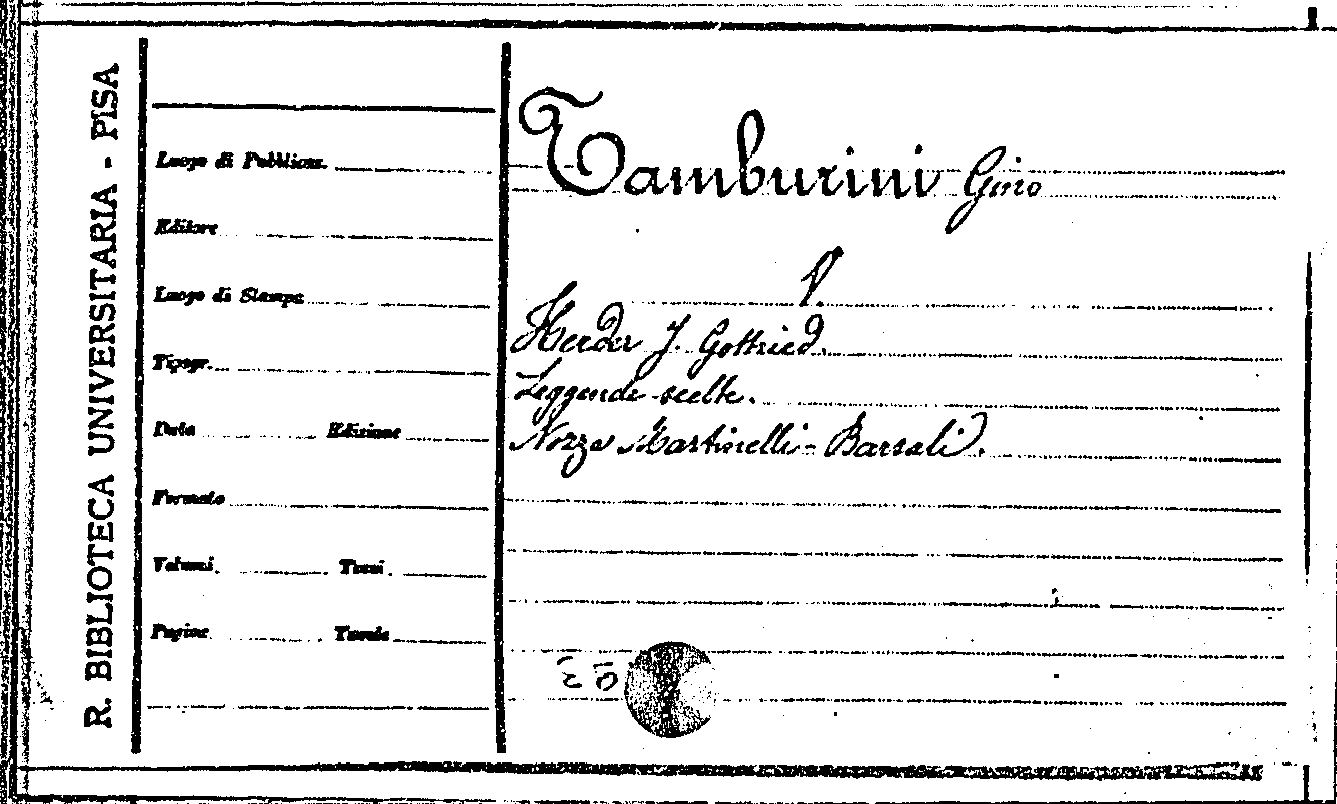 R. BIBLIOTECA UNIVERSITARIA - PISA
Luogo di Pubblicaz.
Editore
Luogo di Stampa
Tipogr.
Data Edizione
Formato
Volumi Tomi
Pagine Tavole
Tamburini Gino
V.
Herder J. Gottried.
Leggende scelte.
Nozze Martinelli-Barsali.